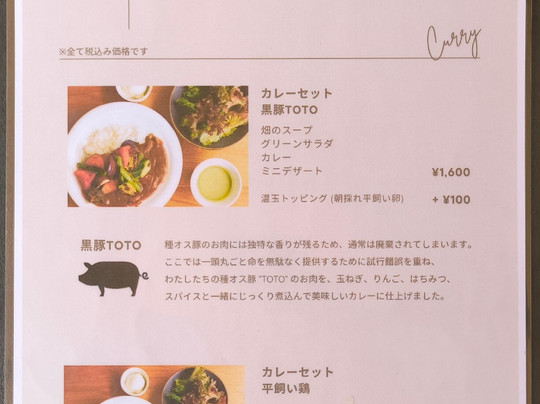 Curry
※全て税込み価格です
カレーセット
黒豚TOTO
畑のスープ
グリーンサラダ
カレー
ミニデザート ¥1,600
温玉トッピング (朝採れ平飼い卵) + ¥100
黒豚TOTO
種オス豚のお肉には独特な香りが残るため、通常は廃棄されてしまいます。
ここでは一頭丸ごと命を無駄なく提供するために試行錯誤を重ね、
わたしたちの種オス豚 "TOTO" のお肉を、玉ねぎ、りんご、はちみつ、
スパイスと一緒にじっくり煮込んで美味しいカレーに仕上げました。
カレーセット
平飼い鶏